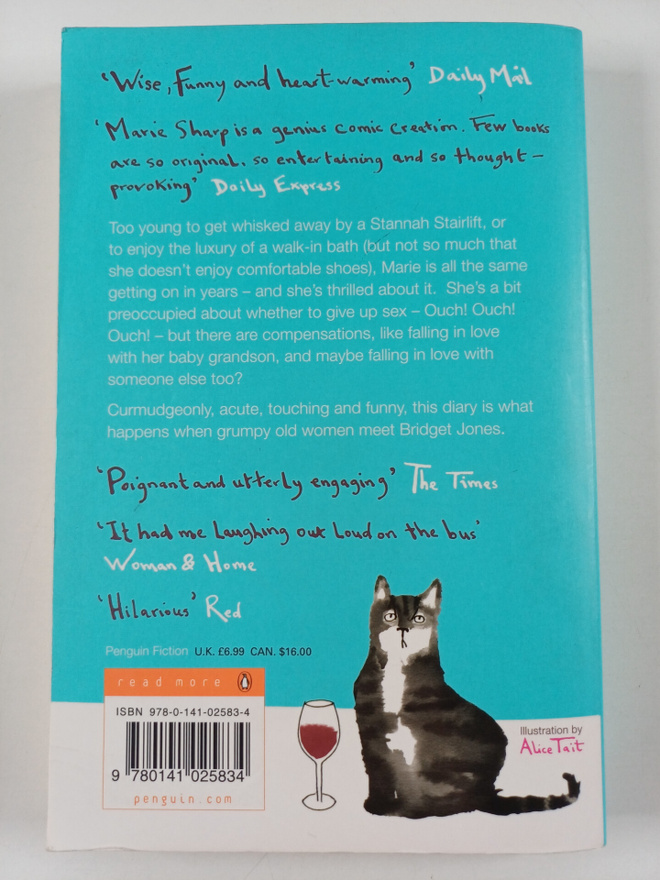 'Wise, funny and heart-warming' Daily Mail
'Marie Sharp is a genius comic creation. Few books
are so original, so entertaining and so thought-
provoking' Daily Express
Too young to get whisked away by a Stannah Stairlift, or
to enjoy the luxury of a walk-in bath (but not so much that
she doesn't enjoy comfortable shoes), Marie is all the same
getting on in years – and she's thrilled about it. She's a bit
preoccupied about whether to give up sex – Ouch! Ouch!
Ouch! – but there are compensations, like falling in love
with her baby grandson, and maybe falling in love with
someone else too?
Curmudgeonly, acute, touching and funny, this diary is what
happens when grumpy old women meet Bridget Jones.
'Poignant and utterly engaging' The Times
'It had me laughing out loud on the bus'
Woman & Home
'Hilarious' Red
Penguin Fiction U.K. £6.99 CAN. $16.00
read more
ISBN 978-0-141-02583-4
9 780141 025834
penguin.com
Illustration by
Alice Tait